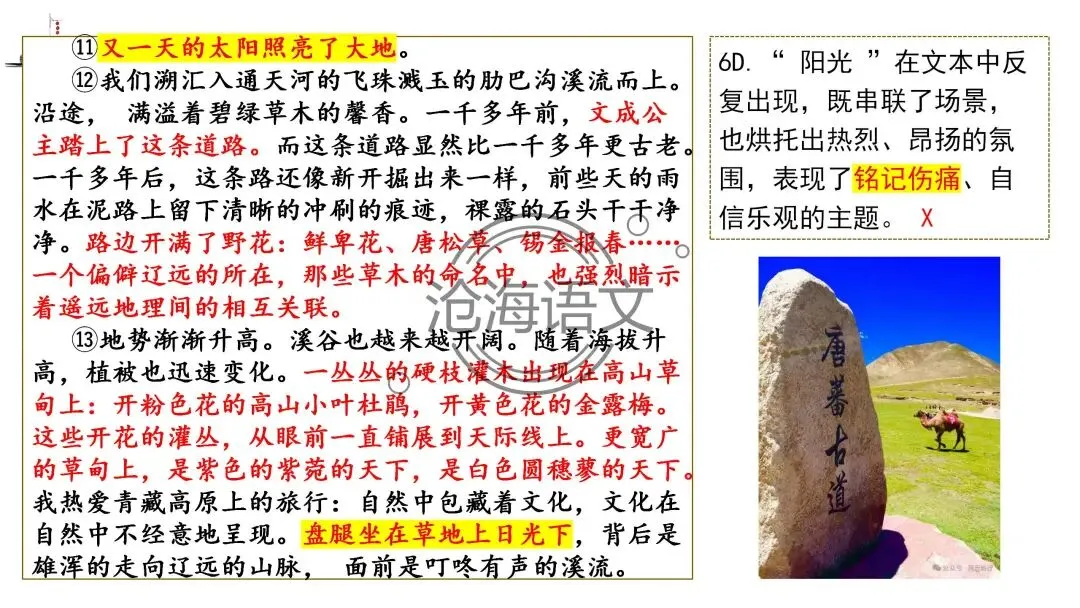 ⑪又一天的太阳照亮了大地。
⑫我们溯汇入通天河的飞珠溅玉的肋巴沟溪流而上。
沿途， 满溢着碧绿草木的馨香。一千多年前，文成公
主踏上了这条道路。而这条道路显然比一千多年更古老。
一千多年后，这条路还像新开掘出来一样，前些天的雨
水在泥路上留下清晰的冲刷的痕迹，裸露的石头干干净
净。路边开满了野花：鲜卑花、唐松草、锡金报春……
一个偏僻辽远的所在，那些草木的命名中，也强烈暗示
着遥远地理间的相互关联。
⑬地势渐渐升高。溪谷也越来越开阔。随着海拔升
高，植被也迅速变化。一丛丛的硬枝灌木出现在高山草
甸上：开粉色花的高山小叶杜鹃，开黄色花的金露梅。
这些开花的灌丛，从眼前一直铺展到天际线上。更宽广
的草甸上，是紫色的紫菀的天下，是白色圆穗蓼的天下。
我热爱青藏高原上的旅行：自然中包藏着文化，文化在
自然中不经意地呈现。盘腿坐在草地上日光下，背后是
雄浑的走向辽远的山脉， 面前是叮咚有声的溪流。
6D.“ 阳光 ”在文本中反
复出现，既串联了场景，
也烘托出热烈、昂扬的氛
围，表现了铭记伤痛、自
信乐观的主题。 X
唐蕃古道
沧海语文